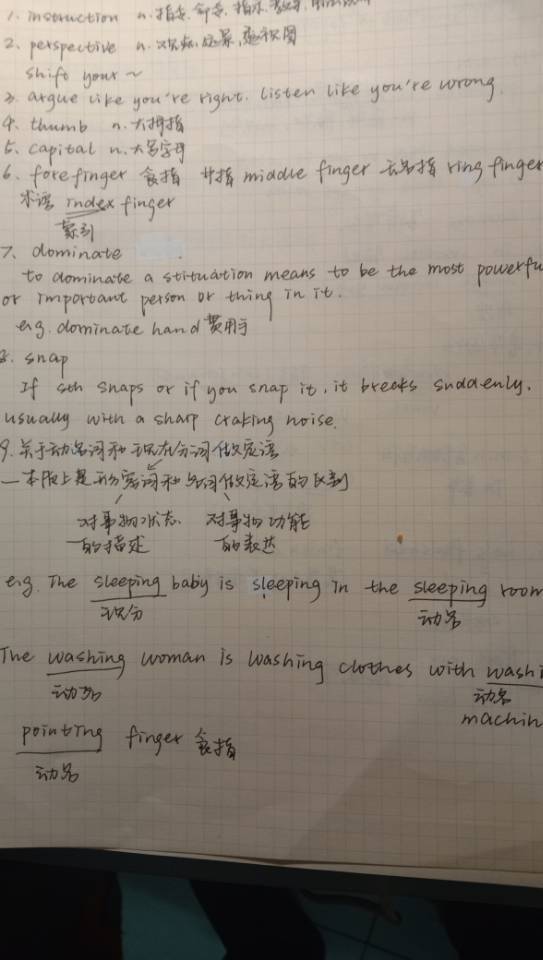 1. instruction n.指令,命令,指示,
2. perspective n.观点,远景,透视图
shift your ~
3. argue like you're right. listen like you're wrong.
4. thumb n.大拇指
5. capital n.大写字母
6. forefinger 食指 中指 middle finger 无名指 ring finger
术语 index finger
索引
7. dominate
to dominate a stituation means to be the most powerfu
or important person or thing in it.
e.g. dominate hand 惯用手
8. snap
If sth snaps or if you snap it, it breaks suddenly,
usually with a sharp craking noise.
9. 关于动名词和现在分词做定语
—本质上是形容词和名词做定语的区别
对事物状态 对事物功能
的描述 的表达
e.g. The sleeping baby is sleeping in the sleeping room
现分 动名
The washing woman is washing clothes with washi
动名 动名
machin
pointing finger 食指
动名